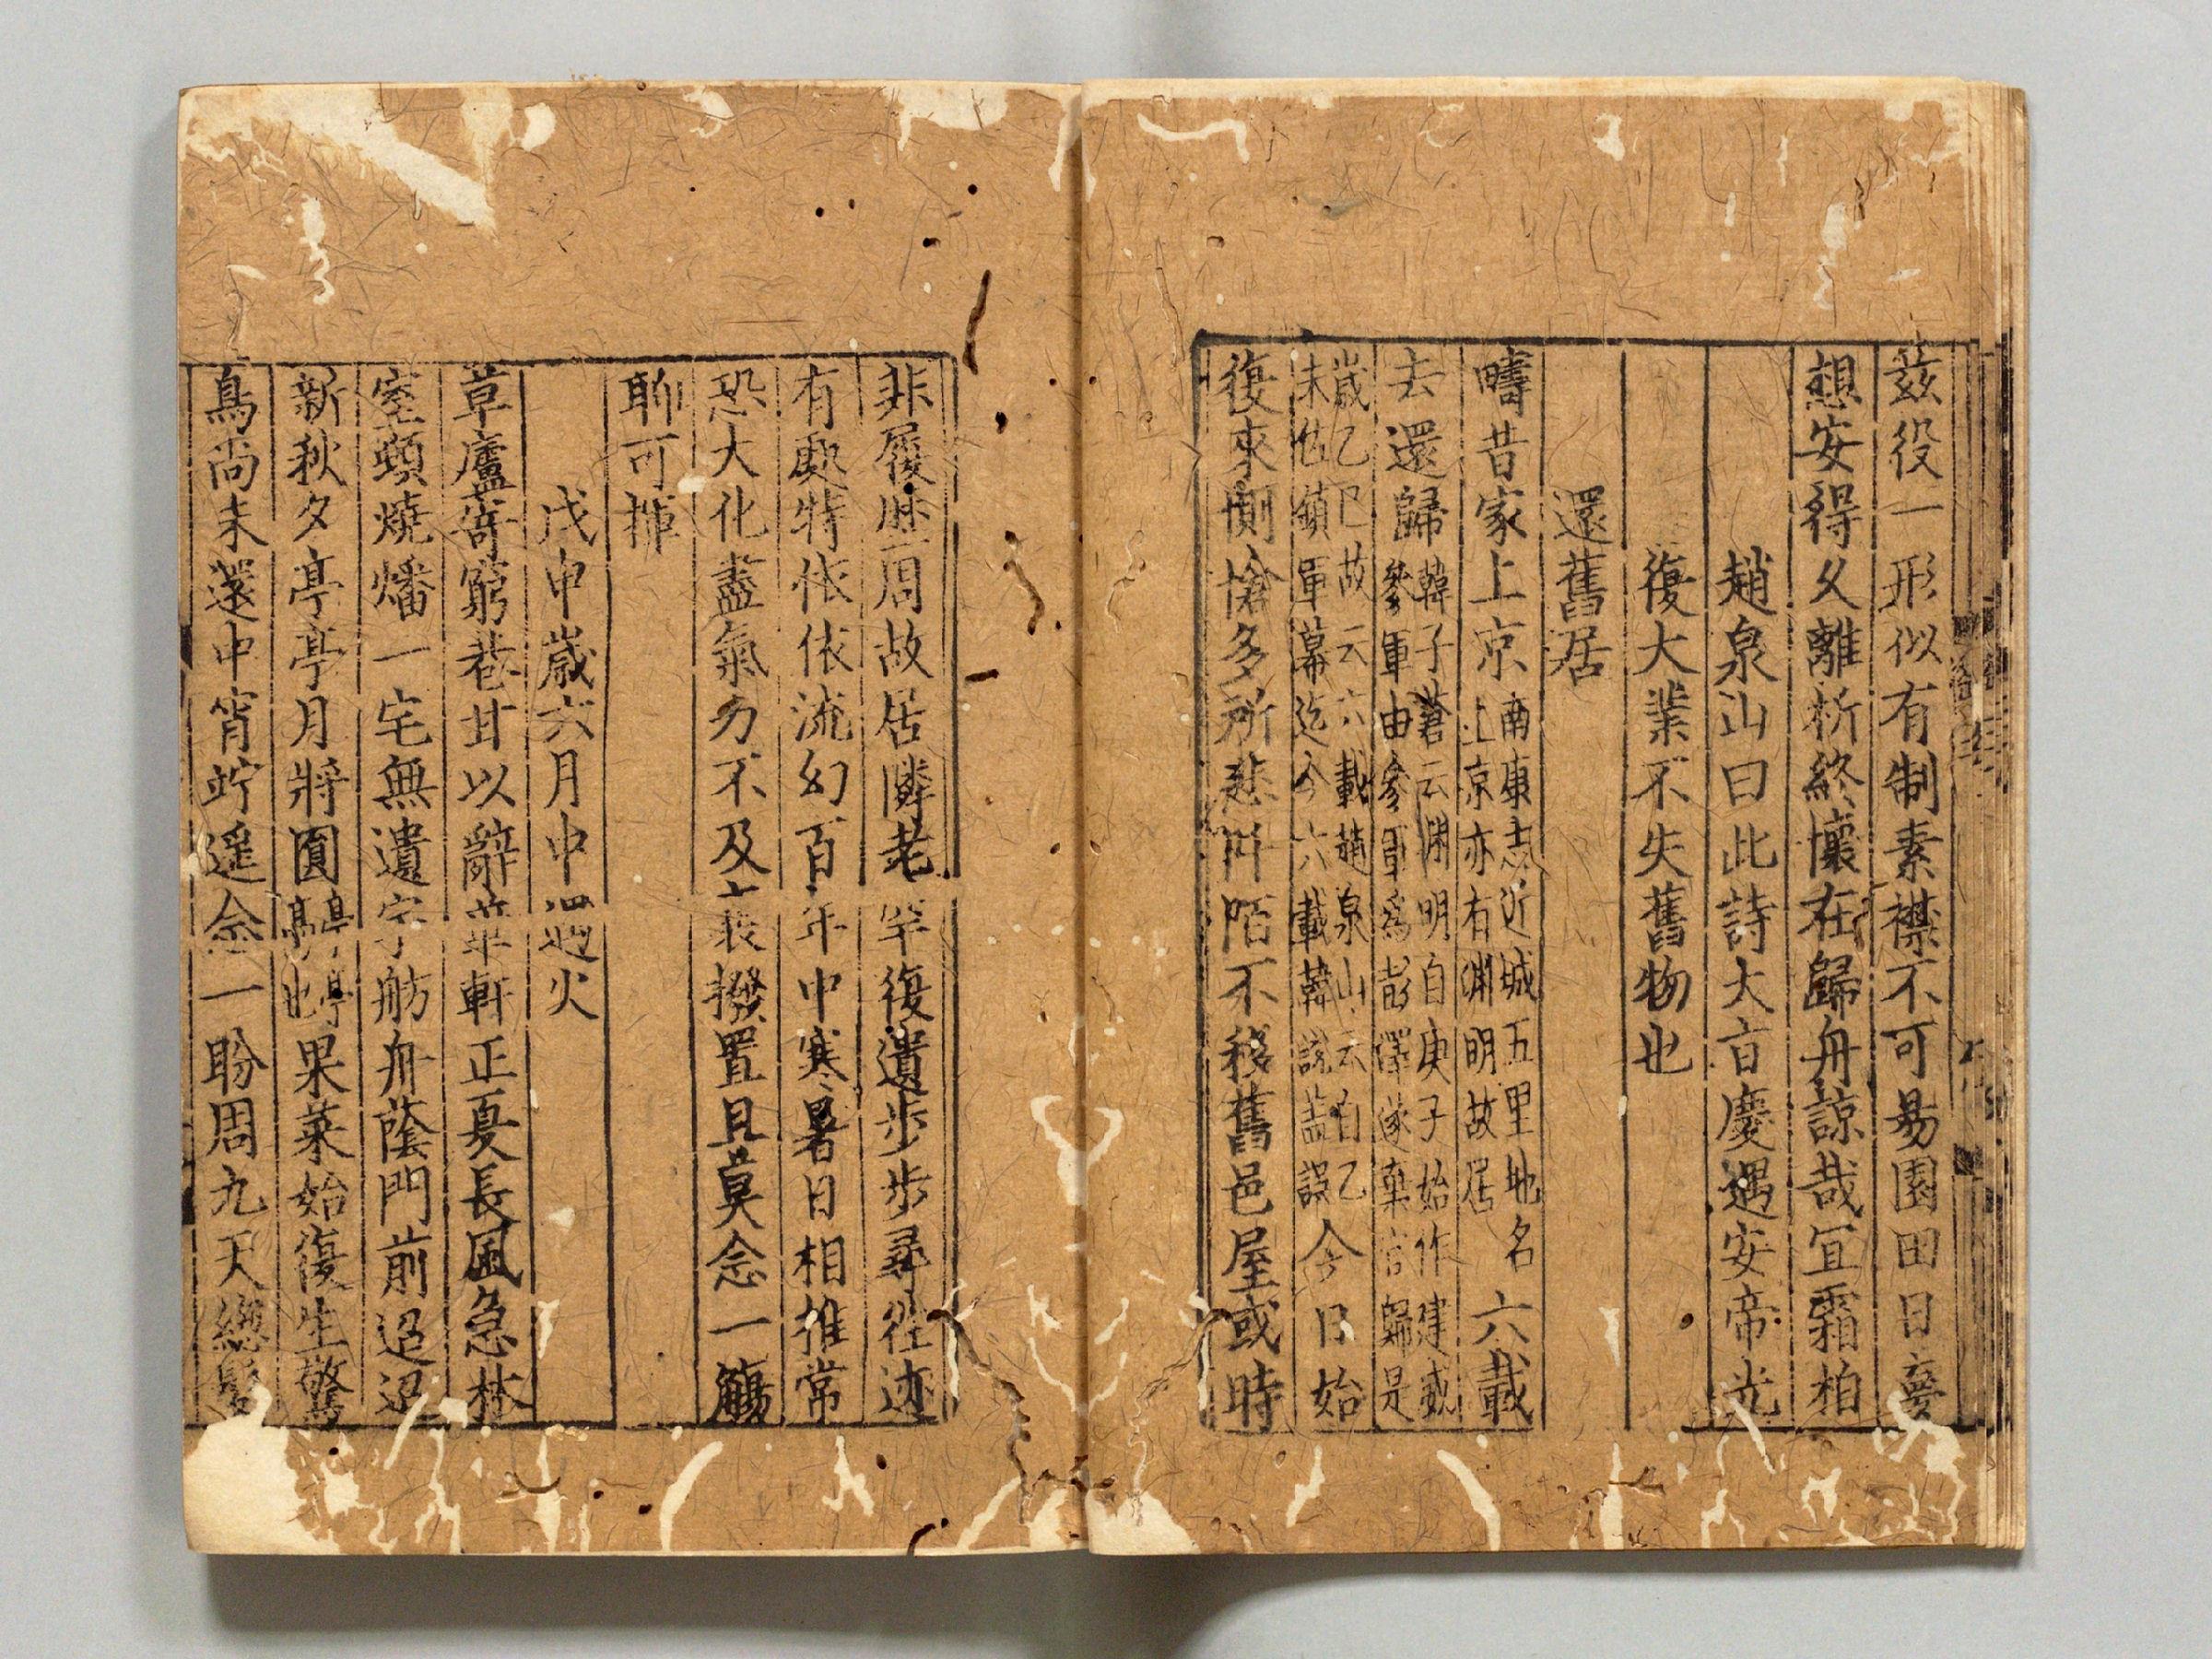 茲役一形似有制素襟不可易園田日夢
想安得久離析終懷在歸舟諒哉宜霜柏
趙泉山曰此詩大旨慶遇安帝光
復大業不失舊物也
還舊居
疇昔家上京
南康志近城五里地名
上京亦有淵明故居
六載
去還歸
韓子蒼云淵明自庚子始作建威
參軍由參軍爲彭澤遂棄官歸是
歲乙巳故云六載趙泉山云自乙
未佐鎮軍幕迄今六載韓說盖誤
今日始
復來惻愴多所悲阡陌不移舊邑屋或時
非履歷周故居隣老罕復遺步步尋往迹
有處特依依流幻百年中寒暑日相推常
恐大化盡氣力不及衰撥置且莫念一觴
聊可揮
戊申歲六月中遇火
草廬寄窮巷甘以辭華軒正夏長風急林
室頓燒燔一宅無遺宇舫舟蔭門前迢迢
新秋夕亭亭月將圓
亭亭
亭也
果菜始復生驚
鳥尚未還中宵竚遥念一盼周九天總髮